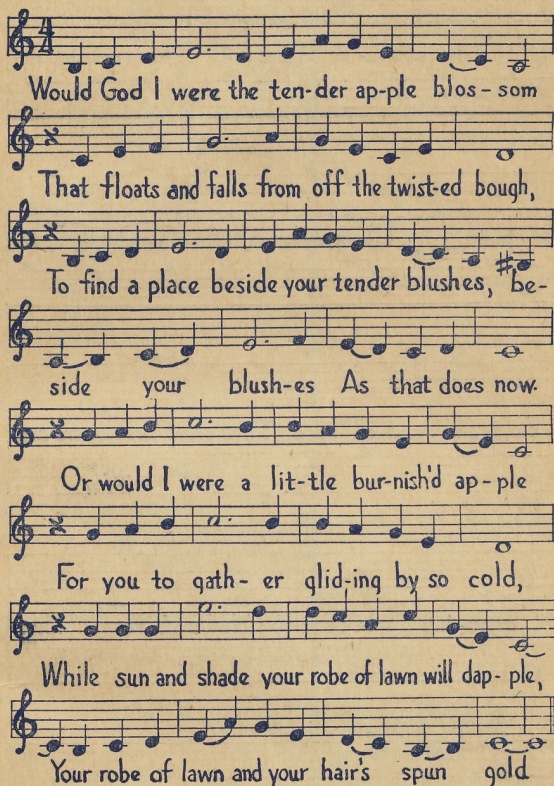 Would God I were the ten-der ap-ple blos-som
That floats and falls from off the twist-ed bough,
To find a place beside your tender blushes, be-
side your blush-es As that does now.
Or would I were a lit-tle bur-nish'd ap-ple
For you to gath-er glid-ing by so cold,
While sun and shade your robe of lawn will dap-ple,
Your robe of lawn and your hair's spun gold